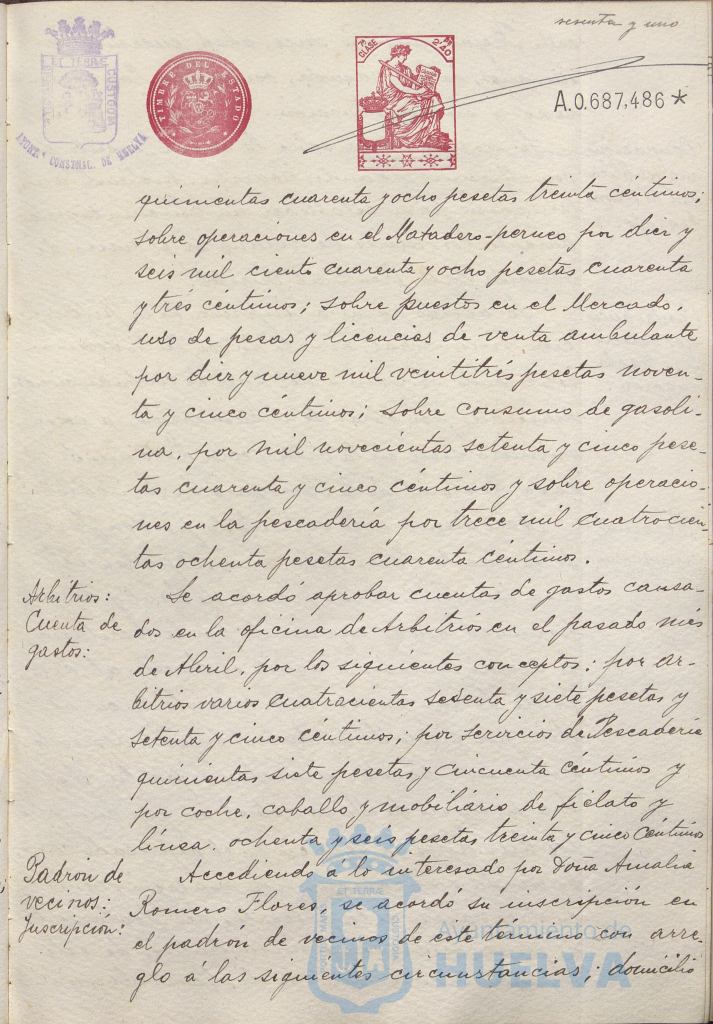 sesenta y uno
ET TERRÆ CUSTODIA
AYUNTº CONSTNAL. DE HUELVA
TIMBRE DEL ESTADO
7ª CLASE
PTS 2'40
A.0.687,486 *
quinientas cuarenta y ocho pesetas treinta céntimos;
sobre operaciones en el Matadero-perneo por diez y
seis mil ciento cuarenta y ocho pesetas cuarenta
y tres céntimos; sobre puestos en el Mercado,
uso de pesas y licencias de venta ambulante
por diez y nueve mil veintitrés pesetas noven-
ta y cinco céntimos; sobre consumo de gasoli-
na, por mil novecientas setenta y cinco pese-
tas cuarenta y cinco céntimos y sobre operacio-
nes en la pescadería por trece mil cuatrocien-
tas ochenta pesetas cuarenta céntimos.
Arbitrios:
Cuenta de
gastos:
Se acordó aprobar cuentas de gastos causa-
dos en la oficina de Arbitrios en el pasado mes
de Abril, por los siguientes conceptos: por ar-
bitrios varios cuatrocientas sesenta y siete pesetas y
setenta y cinco céntimos; por servicios de Pescadería
quinientas siete pesetas y cincuenta céntimos y
por coche, caballo y mobiliario de fielato y
línea, ochenta y seis pesetas treinta y cinco céntimos
Padrón de
vecinos:
Inscripción:
Accediendo á lo interesado por Doña Amalia
Romero Flores, se acordó su inscripción en
el padrón de vecinos de este término con arre-
glo á las siguientes circunstancias; domicilio
Ayuntamiento de
HUELVA